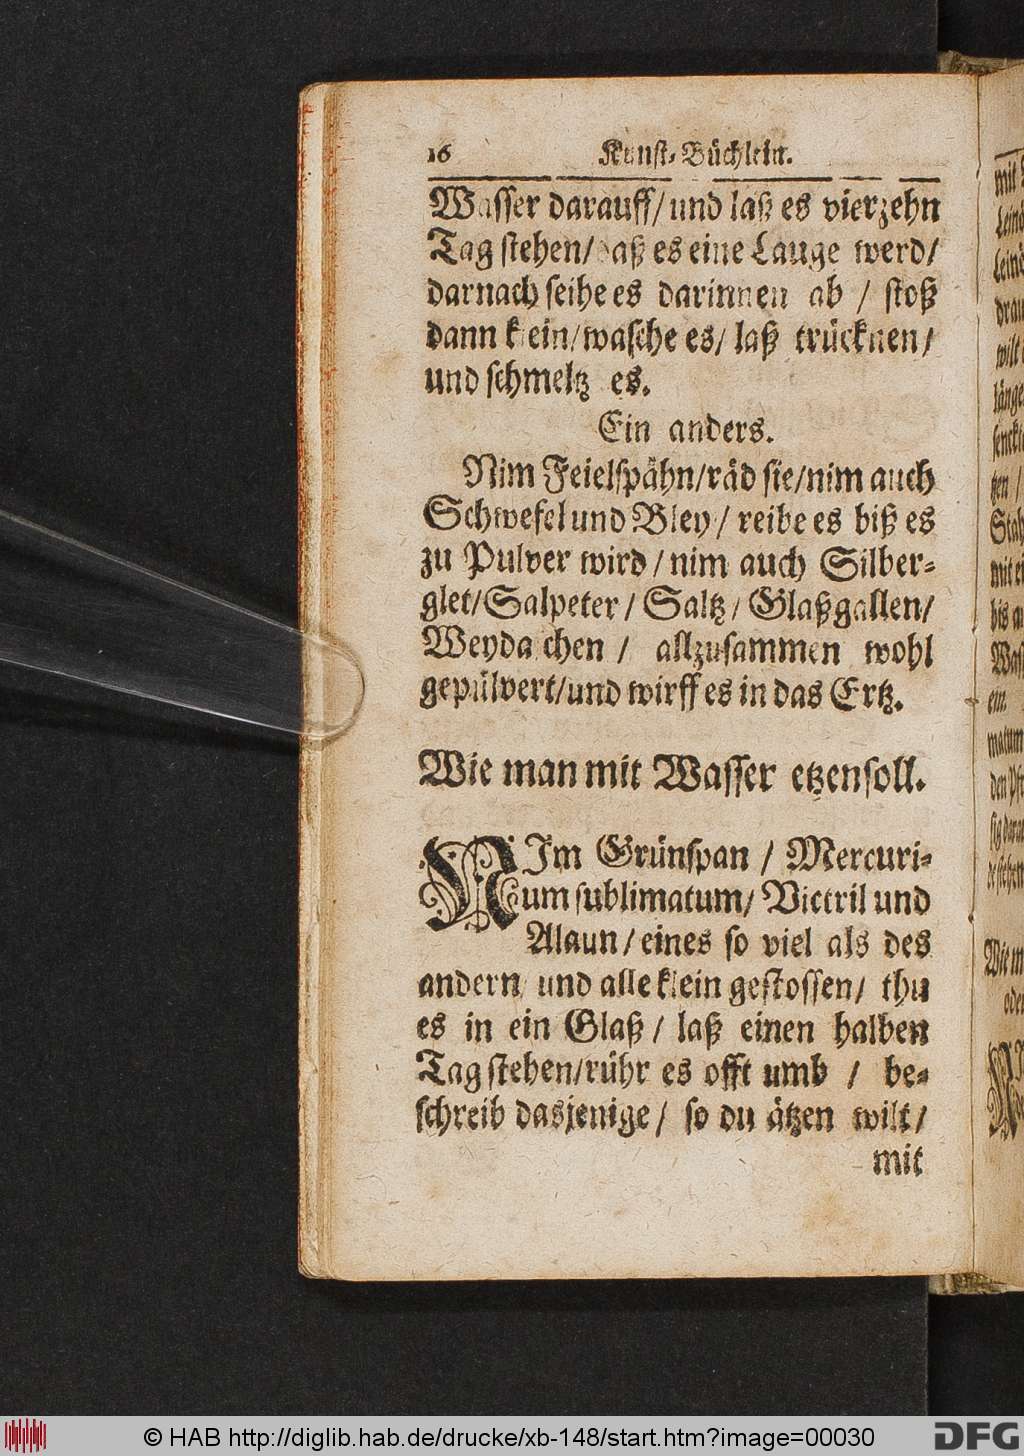 16 Kunst-Büchlein.
Wasser darauff/ und laß es vierzehn
Tag stehen/ daß es eine Lauge werd/
darnach seihe es darinnen ab / stoß
dann klein/ wasche es/ laß trücknen/
und schmeltz es.
Ein anders.
Nim Feielspähn/ räd sie/ nim auch
Schwefel und Bley/ reibe es biß es
zu Pulver wird/ nim auch Silber-
glet/ Salpeter/ Saltz/ Glaßgallen/
allzusammen wohl
gepülvert/ und wirff es in das Ertz.
Wie man mit Wasser etzen soll.
NIm Grünspan / Mercuri-
um sublimatum/ Victril und
Alaun/ eines so viel als des
andern/ und alle klein gestossen/ thu
es in ein Glaß/ laß einen halben
Tag stehen/ rühr es offt umb / be-
schreib dasjenige/ so du ätzen wilt/
mit
mit
Wie m
© HAB http://diglib.hab.de/drucke/xb-148/start.htm?image=00030
DFG